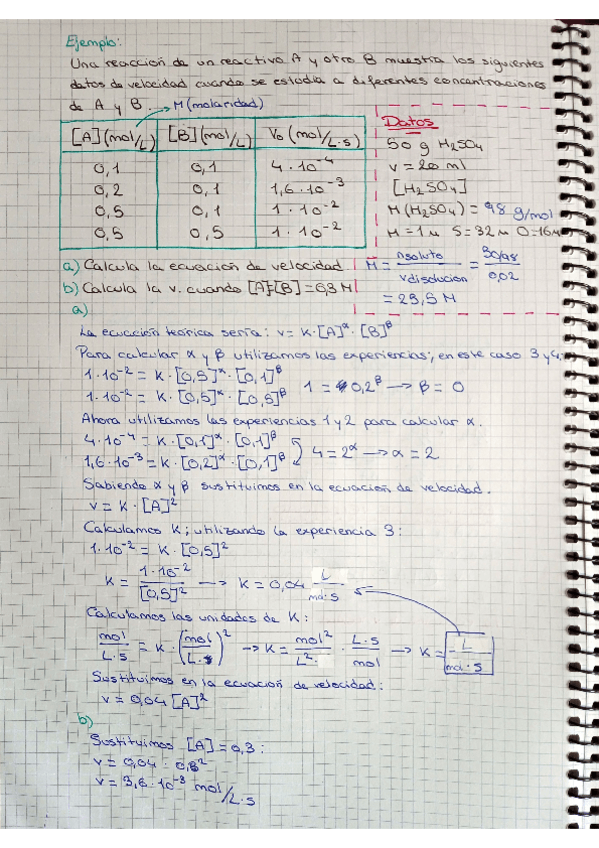 Ejemplo:
Una reacción de un reactivo A y otro B muestra los siguientes
datos de velocidad cuando se estudia a diferentes concentraciones
de A y B. → M (molaridad)
[A](mol/L) [B](mol/L) V₀ (mol/L·s)
0,1 0,1 4·10⁻⁴
0,2 0,1 1,6·10⁻³
0,5 0,1 1·10⁻²
0,5 0,5 1·10⁻²
Datos
50 g H₂SO₄
v = 20 ml
[H₂SO₄]
M (H₂SO₄) = 98 g/mol
H = 1u S = 32u O = 16u
M = nsoluto / vdisolucion = 50/98 / 0,02
= 25,5 M
a) Calcula la ecuación de velocidad
b) Calcula la v. cuando [A]=[B] = 0,3 M
a)
La ecuación teórica sería: v = K·[A]^α·[B]^β
Para calcular α y β utilizamos las experiencias; en este caso 3 y 4.
1·10⁻² = K·[0,5]^α·[0,1]^β
1·10⁻² = K·[0,5]^α·[0,5]^β
1 = 0,2^β → β = 0
Ahora utilizamos las experiencias 1 y 2 para calcular α.
4·10⁻⁴ = K·[0,1]^α·[0,1]^β
1,6·10⁻³ = K·[0,2]^α·[0,1]^β
4 = 2^α → α = 2
Sabiendo α y β sustituimos en la ecuación de velocidad.
v = K·[A]²
Calculamos K; utilizando la experiencia 3:
1·10⁻² = K·[0,5]²
K = 1·10⁻² / [0,5]² → K = 0,04 L / mol·s
Calculamos las unidades de K:
mol / L·s = K·(mol / L·s)² → K = mol² / L² · L·s / mol → K = L / mol·s
Sustituimos en la ecuación de velocidad:
v = 0,04 [A]²
b)
Sustituimos [A] = 0,3:
v = 0,04 · 0,3²
v = 3,6·10⁻³ mol/L·s